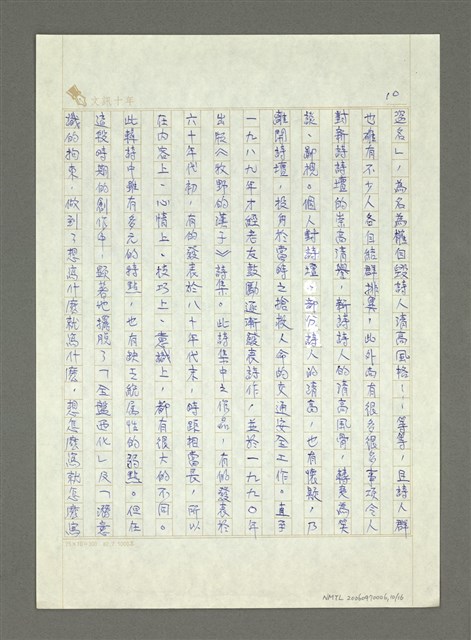 10
文訊十年
盜名」，為名為權自毀詩人清高風格！…等等，且詩人群
也確有不少人各自結群排集，此外尚有很多很多事項令人
對新詩詩壇的崇高清譽，新詩詩人的清高風骨，轉變為笑
談、鄙視。個人對詩壇，部份詩人的清高，也有懷疑，乃
離開詩壇，投身於當時之搶救人命的交通安全工作。直至
一九八九年才經老友鼓勵逐漸發表詩作，並於一九九0年
出版《牧野的漢子》詩集。此詩集中之作品，有的發表於
六十年代初，有的發表於八十年代末，時距相當長，所以
在內容上、心情上、技巧上、意識上，都有很大的不同。
此輯詩中雖有多元的特點，也有缺乏統屬性的弱點。但在
這段時期的創作中，顯著地擺脫了「全盤西化」及「潛意
識的拘束，做到了想寫什麼就寫什麼，想怎麼寫就怎麼寫
NMTL 20060490006,10/16